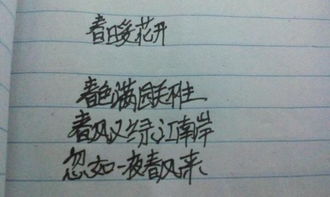 春暖花开
春色满园关不住
春风又绿江南岸
忽如一夜春风来